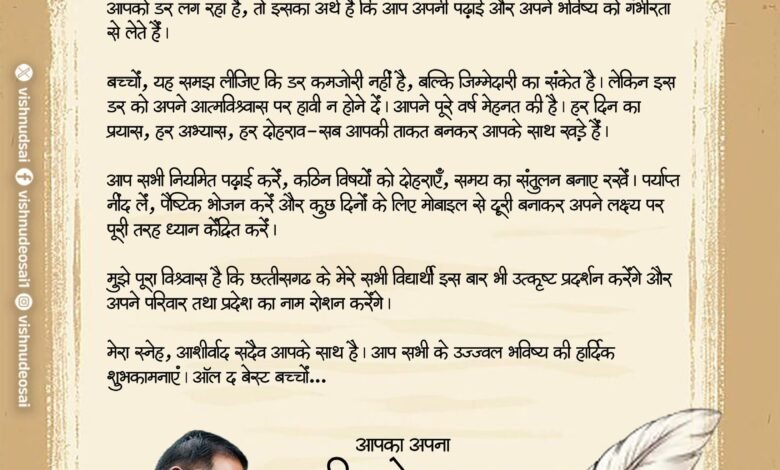 आपको डर लग रहा है, तो इसका अर्थ है कि आप अपनी पढ़ाई और अपने भविष्य को गंभीरता
से लेते हैं।
बच्चों, यह समझ लीजिए कि डर कमजोरी नहीं है, बल्कि जिम्मेदारी का संकेत है। लेकिन इस
डर को अपने आत्मविश्वास पर हावी न होने दें। आपने पूरे वर्ष मेहनत की है। हर दिन का
प्रयास, हर अभ्यास, हर दोहराव-सब आपकी ताकत बनकर आपके साथ खड़े हैं।
आप सभी नियमित पढ़ाई करें, कठिन विषयों को दोहराएँ, समय का संतुलन बनाए रखें। पर्याप्त
नींद लें, पौष्टिक भोजन करें और कुछ दिनों के लिए मोबाइल से दूरी बनाकर अपने लक्ष्य पर
पूरी तरह ध्यान केंद्रित करें।
मुझे पूरा विश्वास है कि छत्तीसगढ के मेरे सभी विद्यार्थी इस बार भी उत्कृष्ट प्रदर्शन करेंगे और
अपने परिवार तथा प्रदेश का नाम रोशन करेंगे।
मेरा स्नेह, आशीर्वाद सदैव आपके साथ है। आप सभी के उज्ज्वल भविष्य की हार्दिक
शुभकामनाएं। ऑल द बेस्ट बच्चों...
आपका अपना
vishnudsai
vishnudeosai1
vishnudeosai